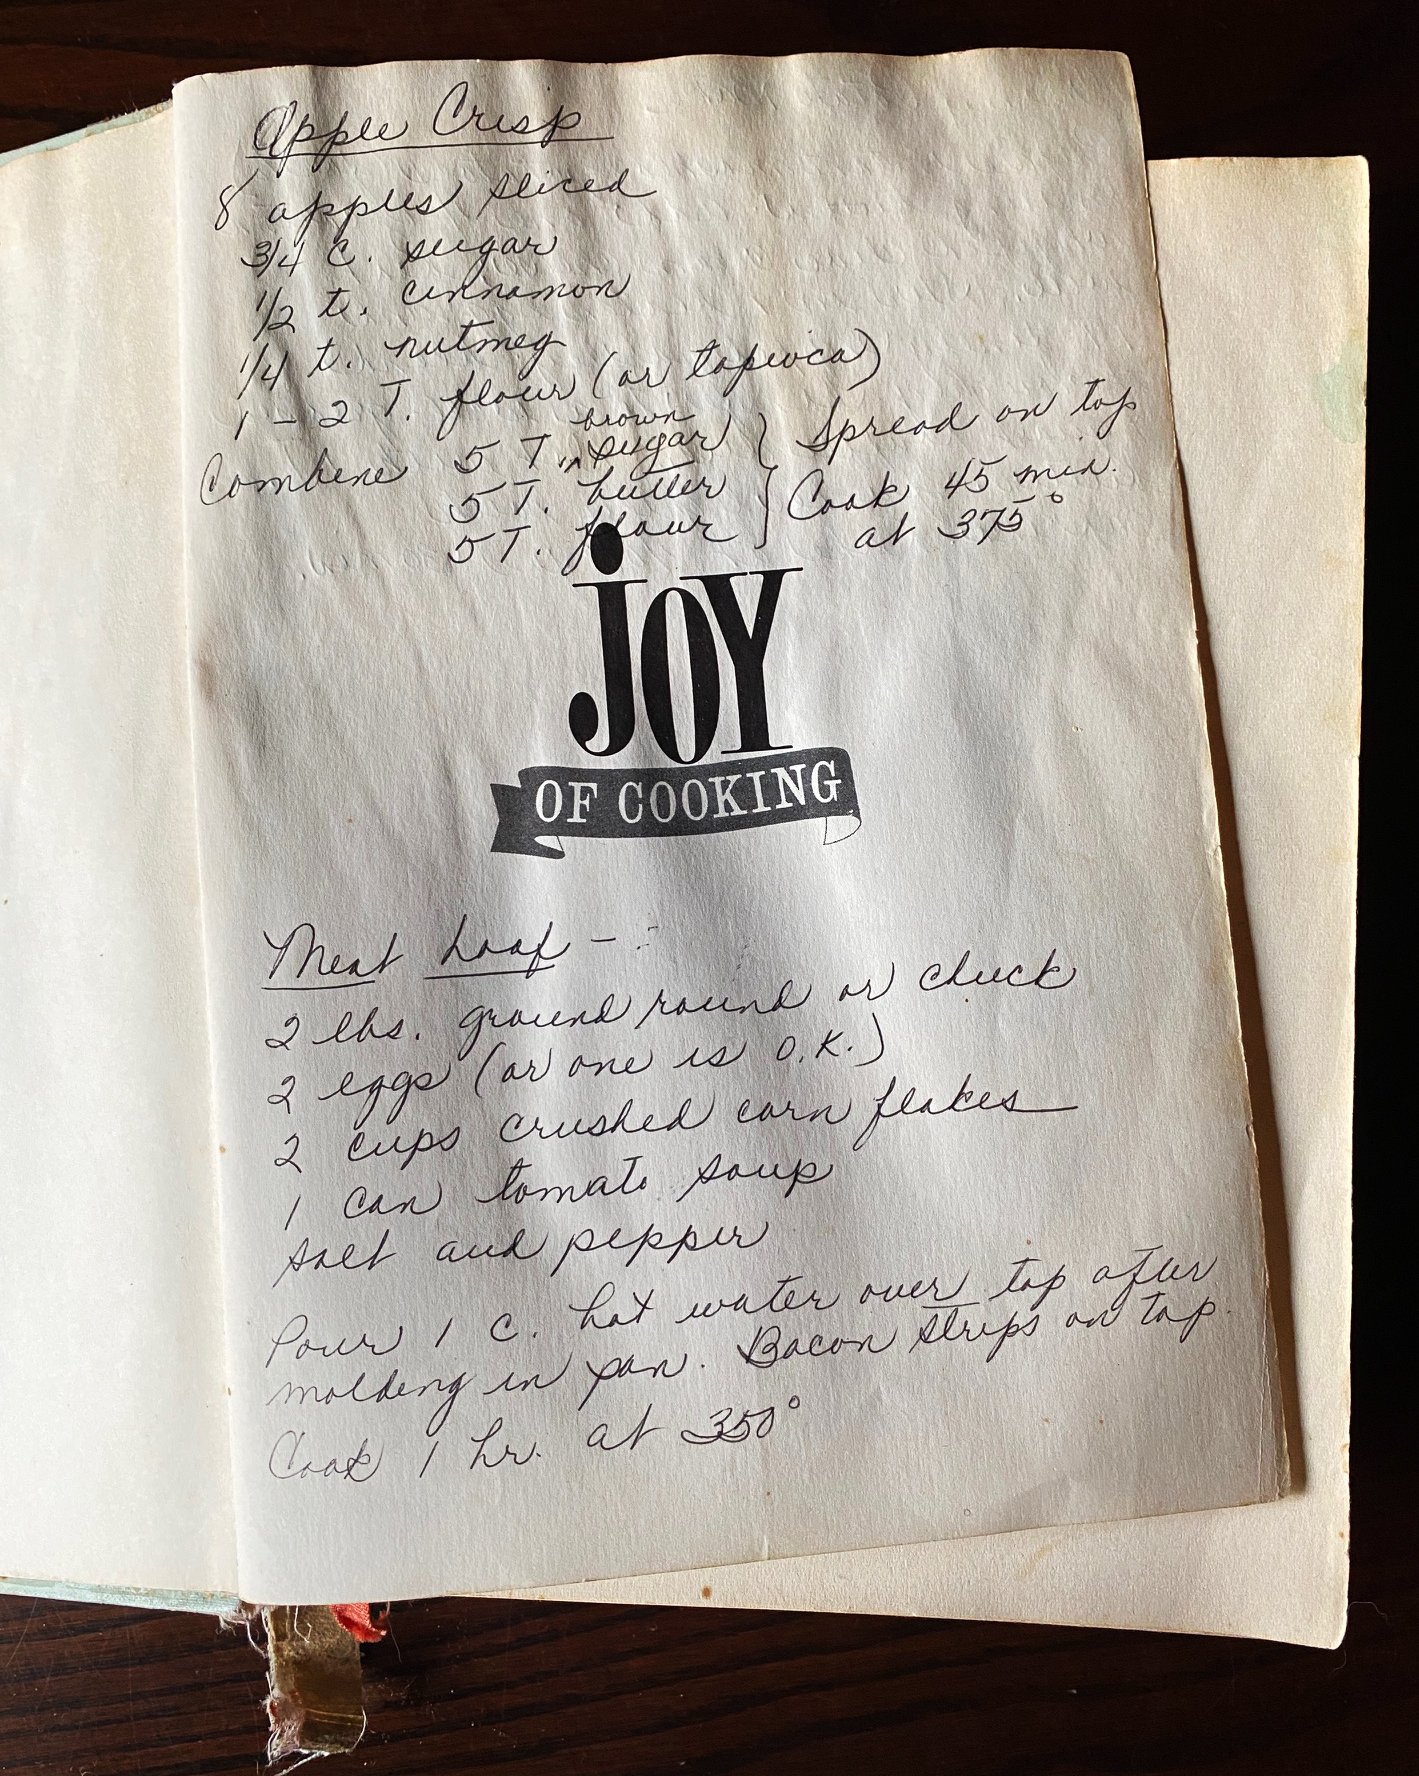 Apple Crisp
8 apples sliced
3/4 c. sugar
1/2 t. cinnamon
1/4 t. nutmeg
1 - 2 T. flour (or tapioca)
Combine 5 T. brown sugar } Spread on top
5 T. butter } Cook 45 min.
5 T. flour } at 375°
joy
OF COOKING
Meat Loaf -
2 lbs. ground round or chuck
2 eggs (or one is O.K.)
2 cups crushed corn flakes
1 can tomato soup
salt and pepper
Pour 1 c. hot water over top after
molding in pan. Bacon strips on top.
Cook 1 hr. at 350°